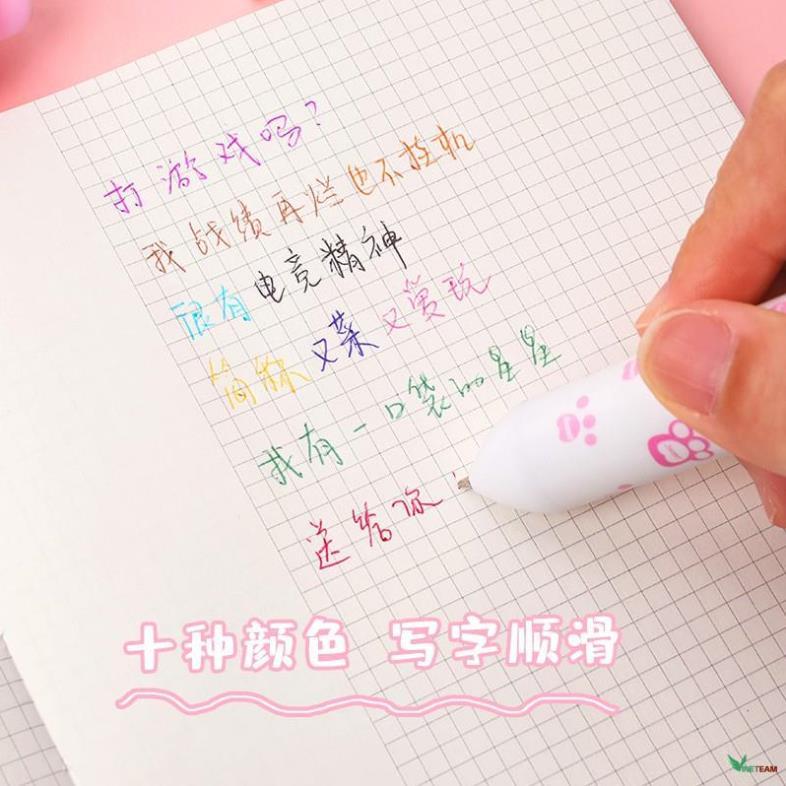 打游戏吗?
我战绩再烂也不挂机
很有电竞精神
简称又菜又爱玩
我有一口袋的星星
送给你
十种颜色 写字顺滑
VIETEAM